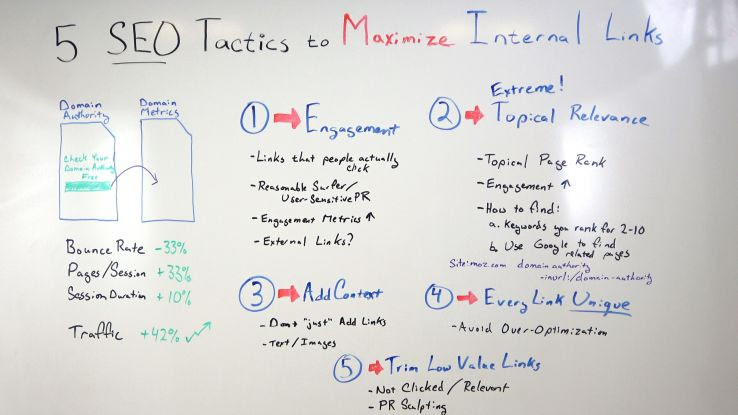 5 SEO Tactics to Maximize Internal Links
Domain Authority
Domain Metrics
Check Your
Domain Authority
Free
Bounce Rate -33%
Pages/Session +33%
Session Duration +10%
Traffic +42%
1 Engagement
- Links that people actually
click
- Reasonable Surfer/
User-Sensitive PR
- Engagement Metrics ↑
- External Links?
Extreme!
2 Topical Relevance
- Topical Page Rank
- Engagement ↑
- How to find:
a. Keywords you rank for 2-10
b. Use Google to find
related pages
Site:moz.com domain authority
-inurl:/domain-authority
3 Add Context
- Don't "just" Add Links
- Text/Images
4 Every Link Unique
- Avoid Over-Optimization
5 Trim Low Value Links
- Not Clicked/Relevant
- PR Sculpting